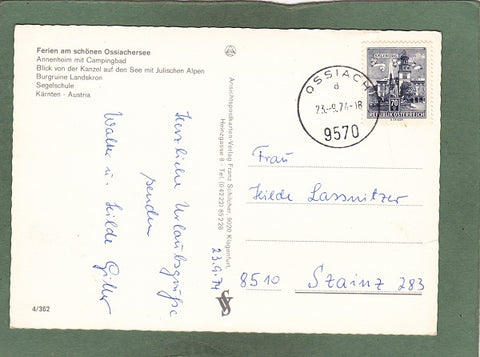 Ferien am schönen Ossiachersee
Annenheim mit Campingbad
Blick von der Kanzel auf den See mit Julischen Alpen
Burgruine Landskron
Segelschule
Kärnten - Austria
Herzliche Urlaubsgrüße
senden
Walter u. Hilde
23.9.74
Ansichtspostkarten-Verlag Franz Schilcher, 9020 Klagenfurt,
Heinzgasse 8 · Tel. (0 42 22) 85 2 28
OSSIACH
d
23.-9.74-18
9570
70
REPUBLIK ÖSTERREICH
Frau
Hilde Lassnitzer
8510 Stainz 283
4/362